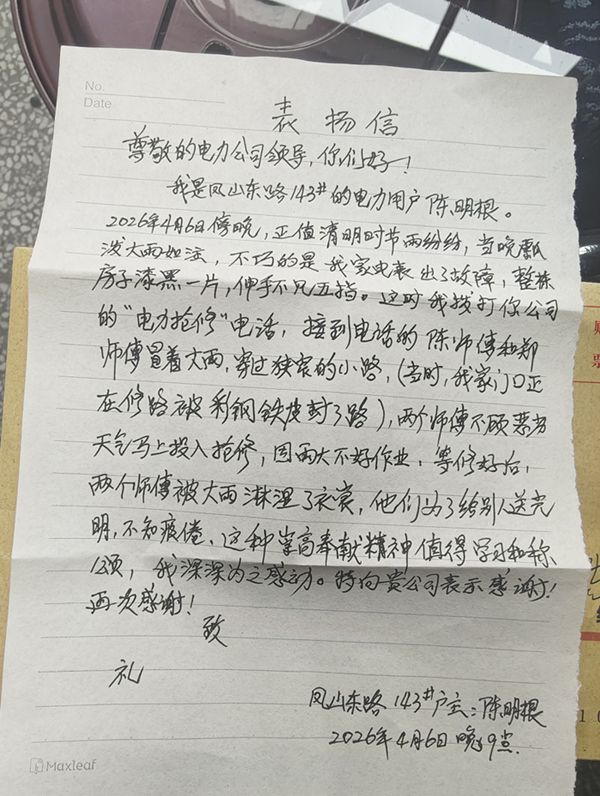 No.
Date
表扬信
尊敬的电力公司领导,你们好!
我是凤山东路143#的电力用户陈明根。
2026年4月6日傍晚,正值清明时节雨纷纷,当晚瓢
泼大雨如注,不巧的是我家电表出了故障,整栋
房子漆黑一片,伸手不见五指。这时我拨打你公司
的“电力抢修”电话,接到电话的陈师傅和郑
师傅冒着大雨,穿过狭窄的小路,(当时,我家门口正
在修路被彩钢铁皮封了路),两个师傅不顾恶劣
天气马上投入抢修,因雨大不好作业,等修好后,
两个师傅被大雨淋湿了衣裳,他们为了给别人送光
明,不知疲倦,这种崇高奉献精神值得学习和称
颂,我深深为之感动。特向贵公司表示感谢!
再次感谢!
致
礼
凤山东路143#户主:陈明根
2026年4月6日晚9点.
Maxleaf